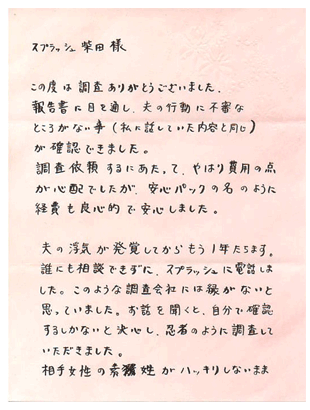 スプラッシュ 柴田 様
この度は調査ありがとうございました。
報告書に目を通し、夫の行動に不審な
ところがない事（私に話していた内容と同じ）
が確認できました。
調査依頼するにあたって、やはり費用の点
が心配でしたが、安心パックの名のように
経費も良心的で安心しました。
夫の浮気が発覚してからもう1年たちます。
誰にも相談できずに、スプラッシュに電話しま
した。このような調査会社には縁がないと
思っていました。お話を聞くと、自分で確認
するしかないと決心し、忍者のように調査して
いただきました。
相手女性の素性がハッキリしないまま